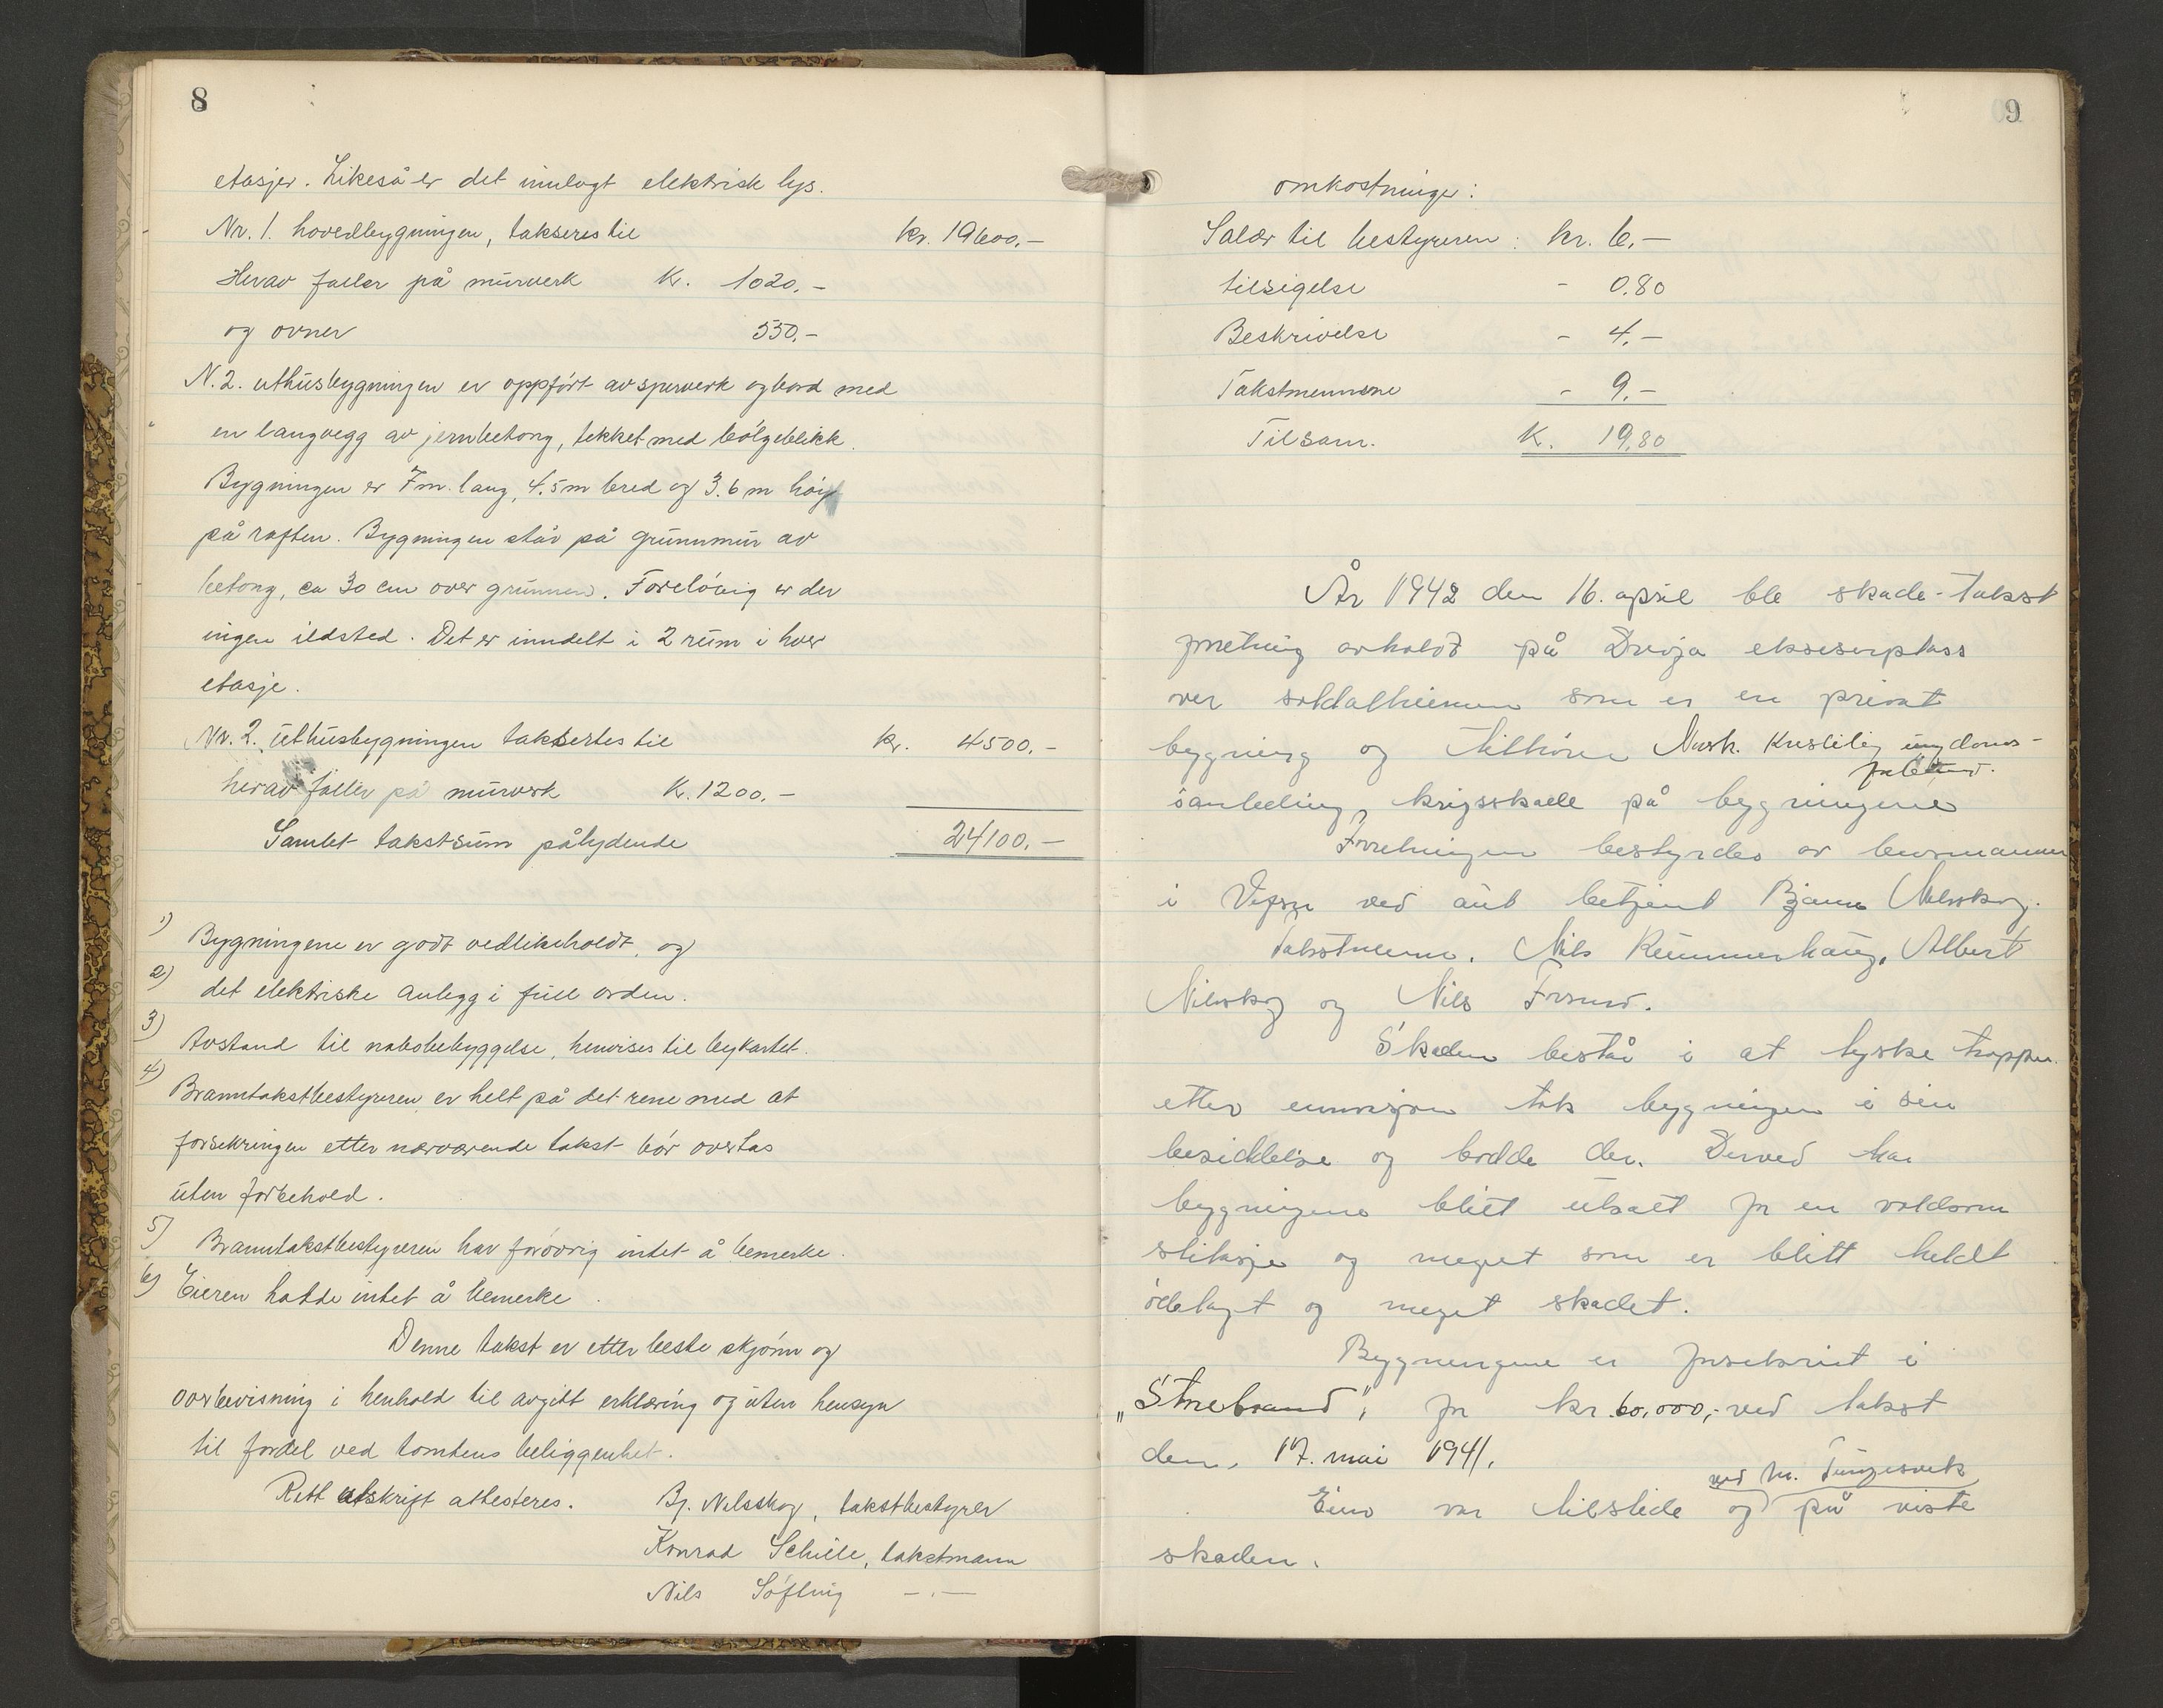 8
etasjer. Likeså er det innlagt elektrisk lys.
Nr. 1. hovedbygningen, takseres til kr. 19600.-
Herav faller på murverk K. 1020.-
og ovner 550.-
N. 2. uthusbygningen er oppført av sperverk og bord med
en langvegg av jernbetong, tekket med bølgeblikk.
Bygningen er 7 m. lang, 4.5 m bred og 3.6 m høy
på raften. Bygningen står på grunnmur av
betong, ca 30 cm over grunnen. Foreløbig er der
ingen ildsted. Det er inndelt i 2 rum i hver
etasje.
Nr. 2. uthusbygningen taksertes til kr. 4500.-
herav faller på murverk K. 1200.-
Samlet takstsum pålydende 24100.-
1) Bygningene er godt vedlikeholdt, og
2) det elektriske anlegg i full orden.
3) Avstand til nabobebyggelse, henvises til bykartet.
4) Branntakstbestyreren er helt på det rene med at
forsekringen etter nærværende takst bør overtas
uten forbehold.
5) Branntakstbestyreren har forøvrig intet å bemerke.
6) Eieren hadde intet å bemerke.
Denne takst er etter beste skjønn og
overbevisning i henhold til avgitt erklæring og uten hensyn
til fordel ved tomtens beliggenhet.
Rett utskrift attesteres. Bj. Nilsskog, takstbestyrer
Konrad Schille, takstmann
Nils Søfting -.-
9
omkostninger:
Salær til bestyreren: kr. 6.-
tilsigelse - 0.80
Beskrivelse - 4.-
Takstmennene - 9.-
Tilsam. K. 19.80
År 1942 den 16. april ble skade-takst
forretning avholdt på Drevja ekserserplass
over soldatheimen som er en privat
bygning og tilhører Norsk. Kristelig ungdoms-
forbund.
samling, krigsskade på bygningene
Forretningen bestyrdes av lensmannen
i Vefsn ved aut betjent Bjarne Nilsskog.
Takstmenn. Nils Remmerhaug, Albert
Nilsskog og Nils Forsmo.
Skaden består i at tyske tropper
etter invasjon tok bygningen i sin
besiddelse og bodde der. Derved har
bygningene blitt utsatt for en voldsom
slitasje og meget som er blitt heldt
ødelagt og meget skadet.
Bygningene er forsekrist i
„Storebrand", for kr. 60.000,- ved takst
den. 17. mai 1941.
ved M. Tungesvik
Eier var tilstede og på viste
skaden.